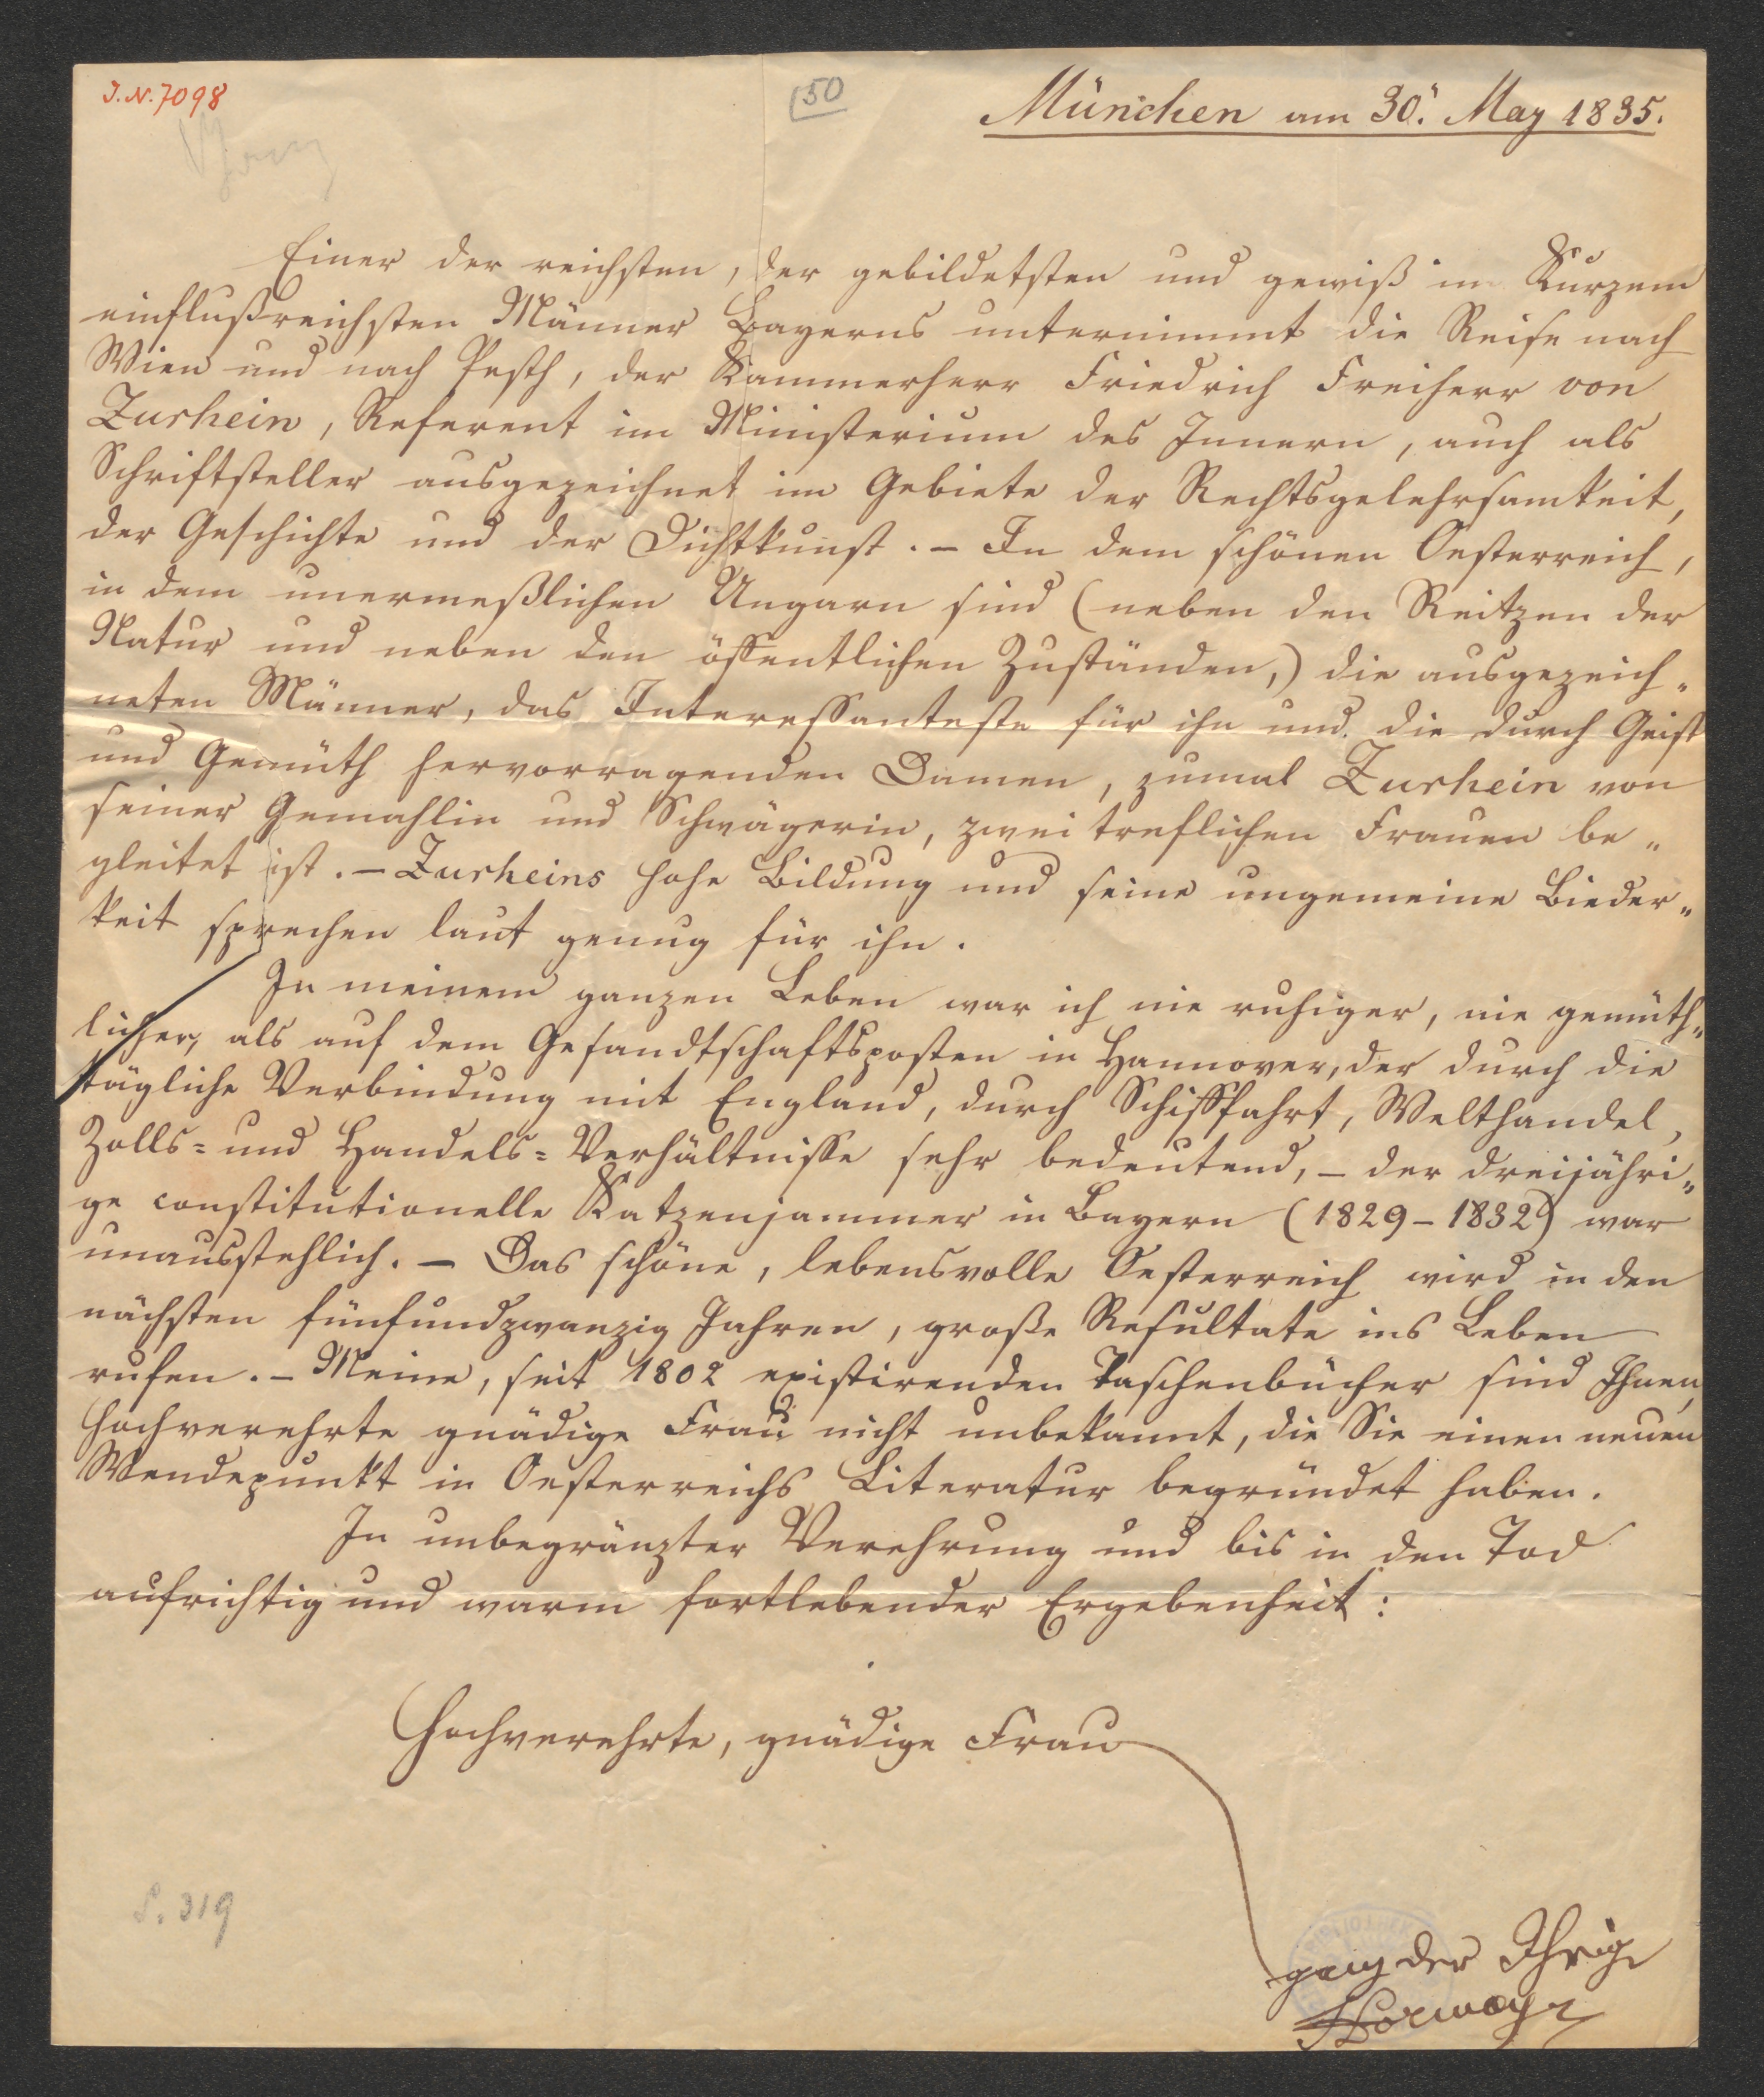 J.N. 7098
50
München am 30. May 1835.
Einer der reichsten, der gebildetsten und gewiß in Kurzem
einflußreichsten Männer Bayerns unternimmt die Reise nach
Wien und nach Pesth, der Kammerherr Friedrich Freiherr von
Zurhein, Referent im Ministerium des Innern, auch als
Schriftsteller ausgezeichnet im Gebiete der Rechtsgelehrsamkeit,
der Geschichte und der Dichtkunst. – In dem schönen Oesterreich,
in dem unermeßlichen Ungarn sind (neben den Reitzen der
Natur und neben den öffentlichen Zuständen,) die ausgezeich„
neten Männer, das Interessanteste für ihn und die durch Geist
und Gemüth hervorragenden Damen, zumal Zurhein von
seiner Gemahlin und Schwägerin, zwei treflichen Frauen be„
gleitet ist. – Zurheins hohe Bildung und seine ungemeine Bieder„
keit sprechen laut genug für ihn.
In meinem ganzen Leben war ich nie ruhiger, nie gemüth„
licher, als auf dem Gesandtschaftsposten in Hannover, der durch die
tägliche Verbindung mit England, durch Schifffahrt, Welthandel,
Zolls= und Handels=Verhältnisse sehr bedeutend, – der dreijähri„
ge constitutionelle Katzenjammer in Bayern (1829–1832) war
unausstehlich. – Das schöne, lebensvolle Oesterreich wird in den
nächsten fünfundzwanzig Jahren, große Resultate ins Leben
rufen. – Meine, seit 1802 existirenden Taschenbücher sind Ihnen,
hochverehrte gnädige Frau nicht unbekannt, die Sie einen neuen
Wendepunkt in Oesterreichs Literatur begründet haben.
In unbegränzter Verehrung und bis in den Tod
aufrichtig und warm fortlebender Ergebenheit:
Hochverehrte, gnädige Frau
ganz der Ihrige
Hormayr
S. 319